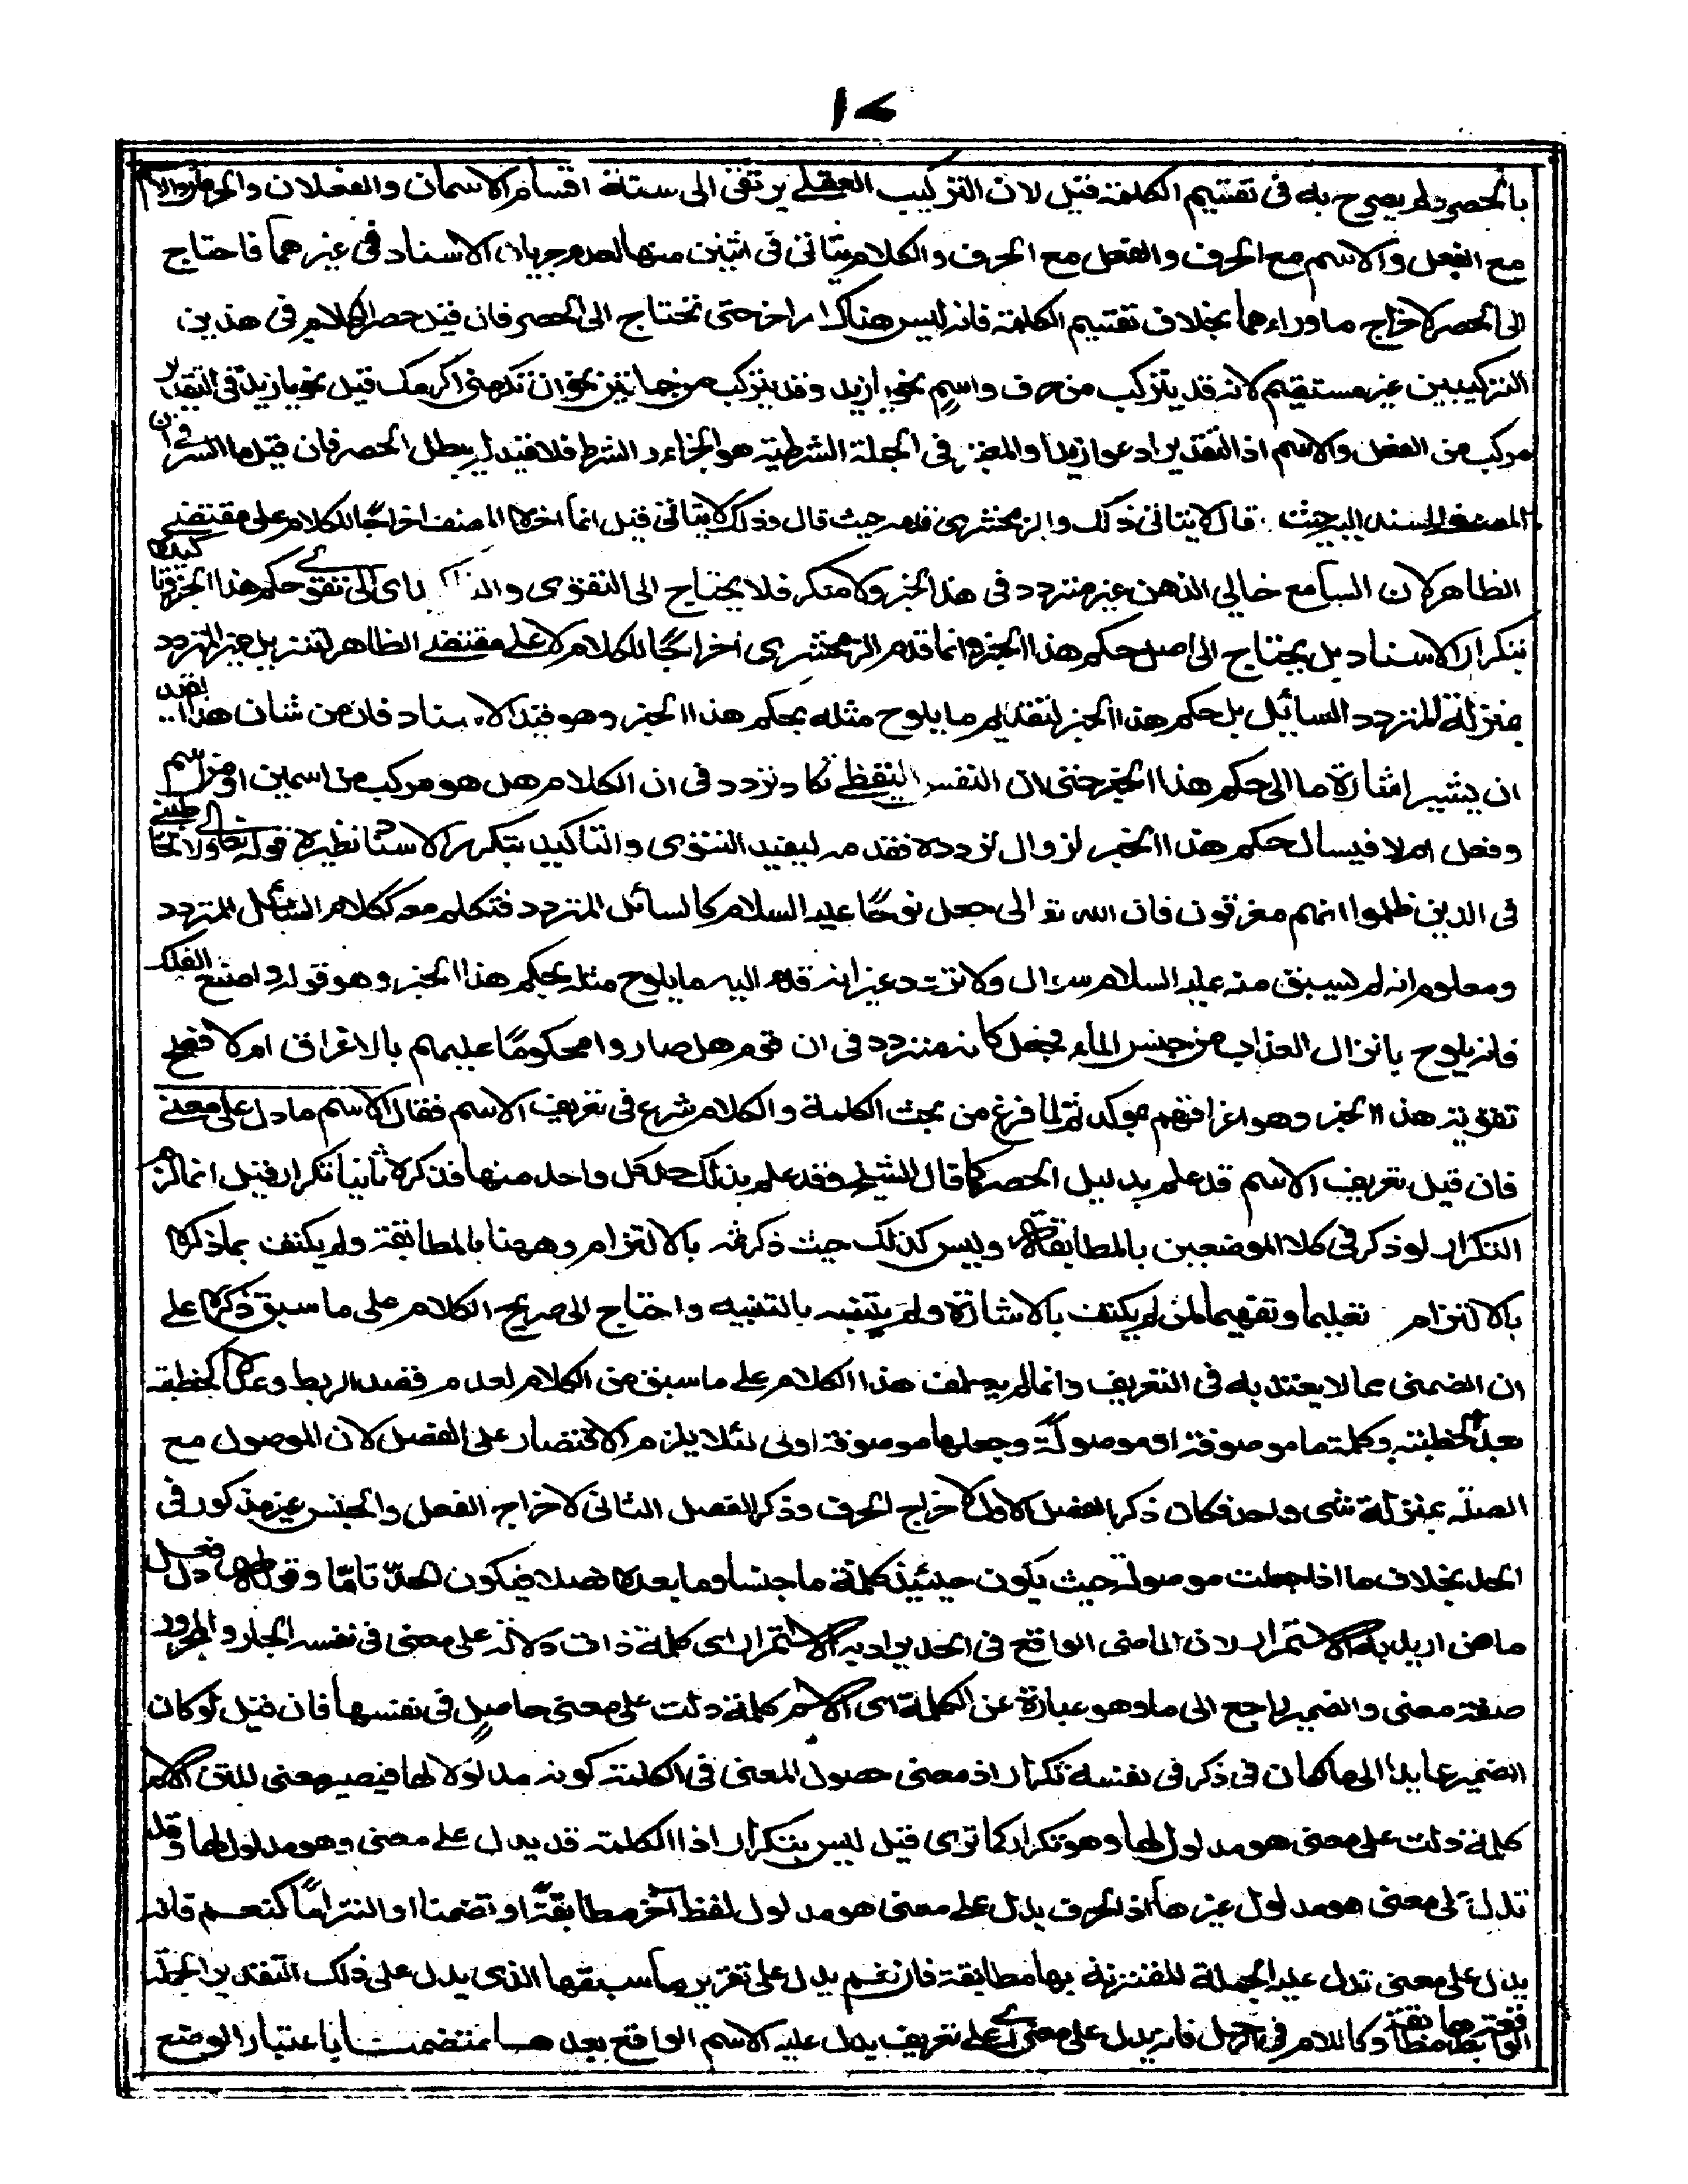 ١٧
بالحصر ولم يصرح به في تقسيم الكلمة قيل لان التركيب العقلي يرتقى الى ستة اقسام الاسمان والفعلان والحرفان والاسم
مع الفعل والاسم مع الحرف والفعل مع الحرف والكلام يتأتى في اثنين منها لعدم جريان الاسناد في غيرهما فاحتاج
الى الحصر لاخراج ما وراءهما بخلاف تقسيم الكلمة فانه ليس هناك امر اخر حتى تحتاج الى الحصر فان قيل حصر الكلام في هذين
التركيبين غير مستقيم لانه قد يتركب من حرف واسم نحو يا زيد وقد يتركب من جملتين نحو ان تكرمني اكرمك قيل نحو يا زيد في التقدير
مركب من الفعل والاسم اذ التقدير ادعو زيدا والمعتبر في الجملة الشرطية هو الجزاء والشرط قيد فلا يبطل الحصر فان قيل ما السر في ان
المصنف حيث قال لا يتأتى ذلك والزمخشرى قدمه حيث قال وذلك لا يتأتى قيل انما اخره المصنف اخراجًا للكلام على مقتضى
الظاهر لان السامع خالي الذهن غير متردد في هذا الخبر ولا منكر فلا يحتاج الى التقوى والتاكيد اى الى تقوى حكم هذا الخبر وتاكيده
بتكرار الاسناد بل يحتاج الى اصل حكم هذا الخبر وانما قدم الزمخشرى اخراجًا للكلام لا على مقتضى الظاهر لتنزيل غير المتردد
بمنزلة المتردد السائل بل حكم هذا الخبر لتقديم ما يلوح مثله بحكم هذا الخبر وهو قيد الاسناد فان من شان هذا القيد
ان يشير اشارة ما الى حكم هذا الخبر حتى ان النفس اليقظى تكاد تردد في ان الكلام هل هو مركب من اسمين او من اسم
وفعل ام لا فيسأل حكم هذا الخبر لزوال تردده فقدمه ليفيد التقوى والتاكيد بتكرير الاسناد نظيره قوله تعالى ولا تخاطبني
في الذين ظلموا انهم مغرقون فان الله تعالى جعل نوحًا عليه السلام كالسائل المتردد فتكلم معه ككلام السائل المتردد
ومعلوم انه لم يسبق منه عليه السلام سؤال ولا تردد غير انه قدم اليه ما يلوح مثله بحكم هذا الخبر وهو قوله واصنع الفلك
فانه يلوح بانزال العذاب من جنس الماء فجعل كانه متردد في ان قومه هل صاروا محكومًا عليهم بالاغراق ام لا فقيل
تقوية هذا الخبر وهو اغراقهم موكد ثم لما فرغ من بحث الكلمة والكلام شرع في تعريف الاسم فقال الاسم ما دل على معنى
فان قيل تعريف الاسم قد علم بدليل الحصر كما قال الشيخ وقد علم بذلك حد كل واحد منها فذكره ثانيا تكرار قيل انما لزم
التكرار لو ذكر في كلا الموضعين بالمطابقة وليس كذلك حيث ذكر ثمه بالالتزام وههنا بالمطابقة ولم يكتف بما ذكره
بالالتزام تعليما وتفهيما لمن لم يكتف بالاشارة ولم يتنبه بالتنبيه واحتاج الى صريح الكلام على ما سبق ذكره على
ان الضمنى مما لا يعتد به في التعريف وانما لم يعطف هذا الكلام على ما سبق من الكلام لعدم قصد الربط وعدّ الخطبة
بعد الخطبة وكلمة ما موصوفة او موصولة وجعلها موصوفة اولى لئلا يلزم الاقتصار على الفصل لان الموصول مع
الصلة بمنزلة شى واحد فكان ذكر الفصل الاول لاخراج الحرف وذكر الفصل الثانى لاخراج الفعل والجنس غير مذكور في
الحد بخلاف ما اذا جعلت موصوفة حيث يكون حينئذ كلمة ما جنسا وما بعدها فصلا فيكون الحدّ تامّا وقوله دل فعل
ماض اريد به الاستمرار لان الماضى الواقع في الحد يراد به الاستمرار اى كلمة ذات دلالة على معنى في نفسه الجار والمجرور
صفة معنى والضمير راجع الى ما وهو عبارة عن الكلمة اى الاسم كلمة دلت على معنى حاصل في نفسها فان قيل لو كان
الضمير عايدا الى ما كان في ذكر في نفسه تكرار اذ معنى حصول المعنى في الكلمة كونه مدلولا لها فيصير معنى المتن الاسم
كلمة دلت على معنى هو مدلول لها وهو تكرار كما ترى قيل ليس بتكرار اذ الكلمة قد يدل على معنى وهو مدلول لها وقد
تدل على معنى هو مدلول غيرها اذ الحرف يدل على معنى هو مدلول لفظ آخر مطابقة او تضمنا او التزامًا كنعم فانه
يدل على معنى تدل عليه الجملة المقترنة بها مطابقة فان نعم يدل على تقرير ما سبقها الذى يدل على ذلك التقدير الجملة
الواقعة بعدها مطابقة وكاللام في الرجل فانه يدل على معنى اى على تعريف يدل عليه الاسم الواقع بعدها تضمنا باعتبار الوضع